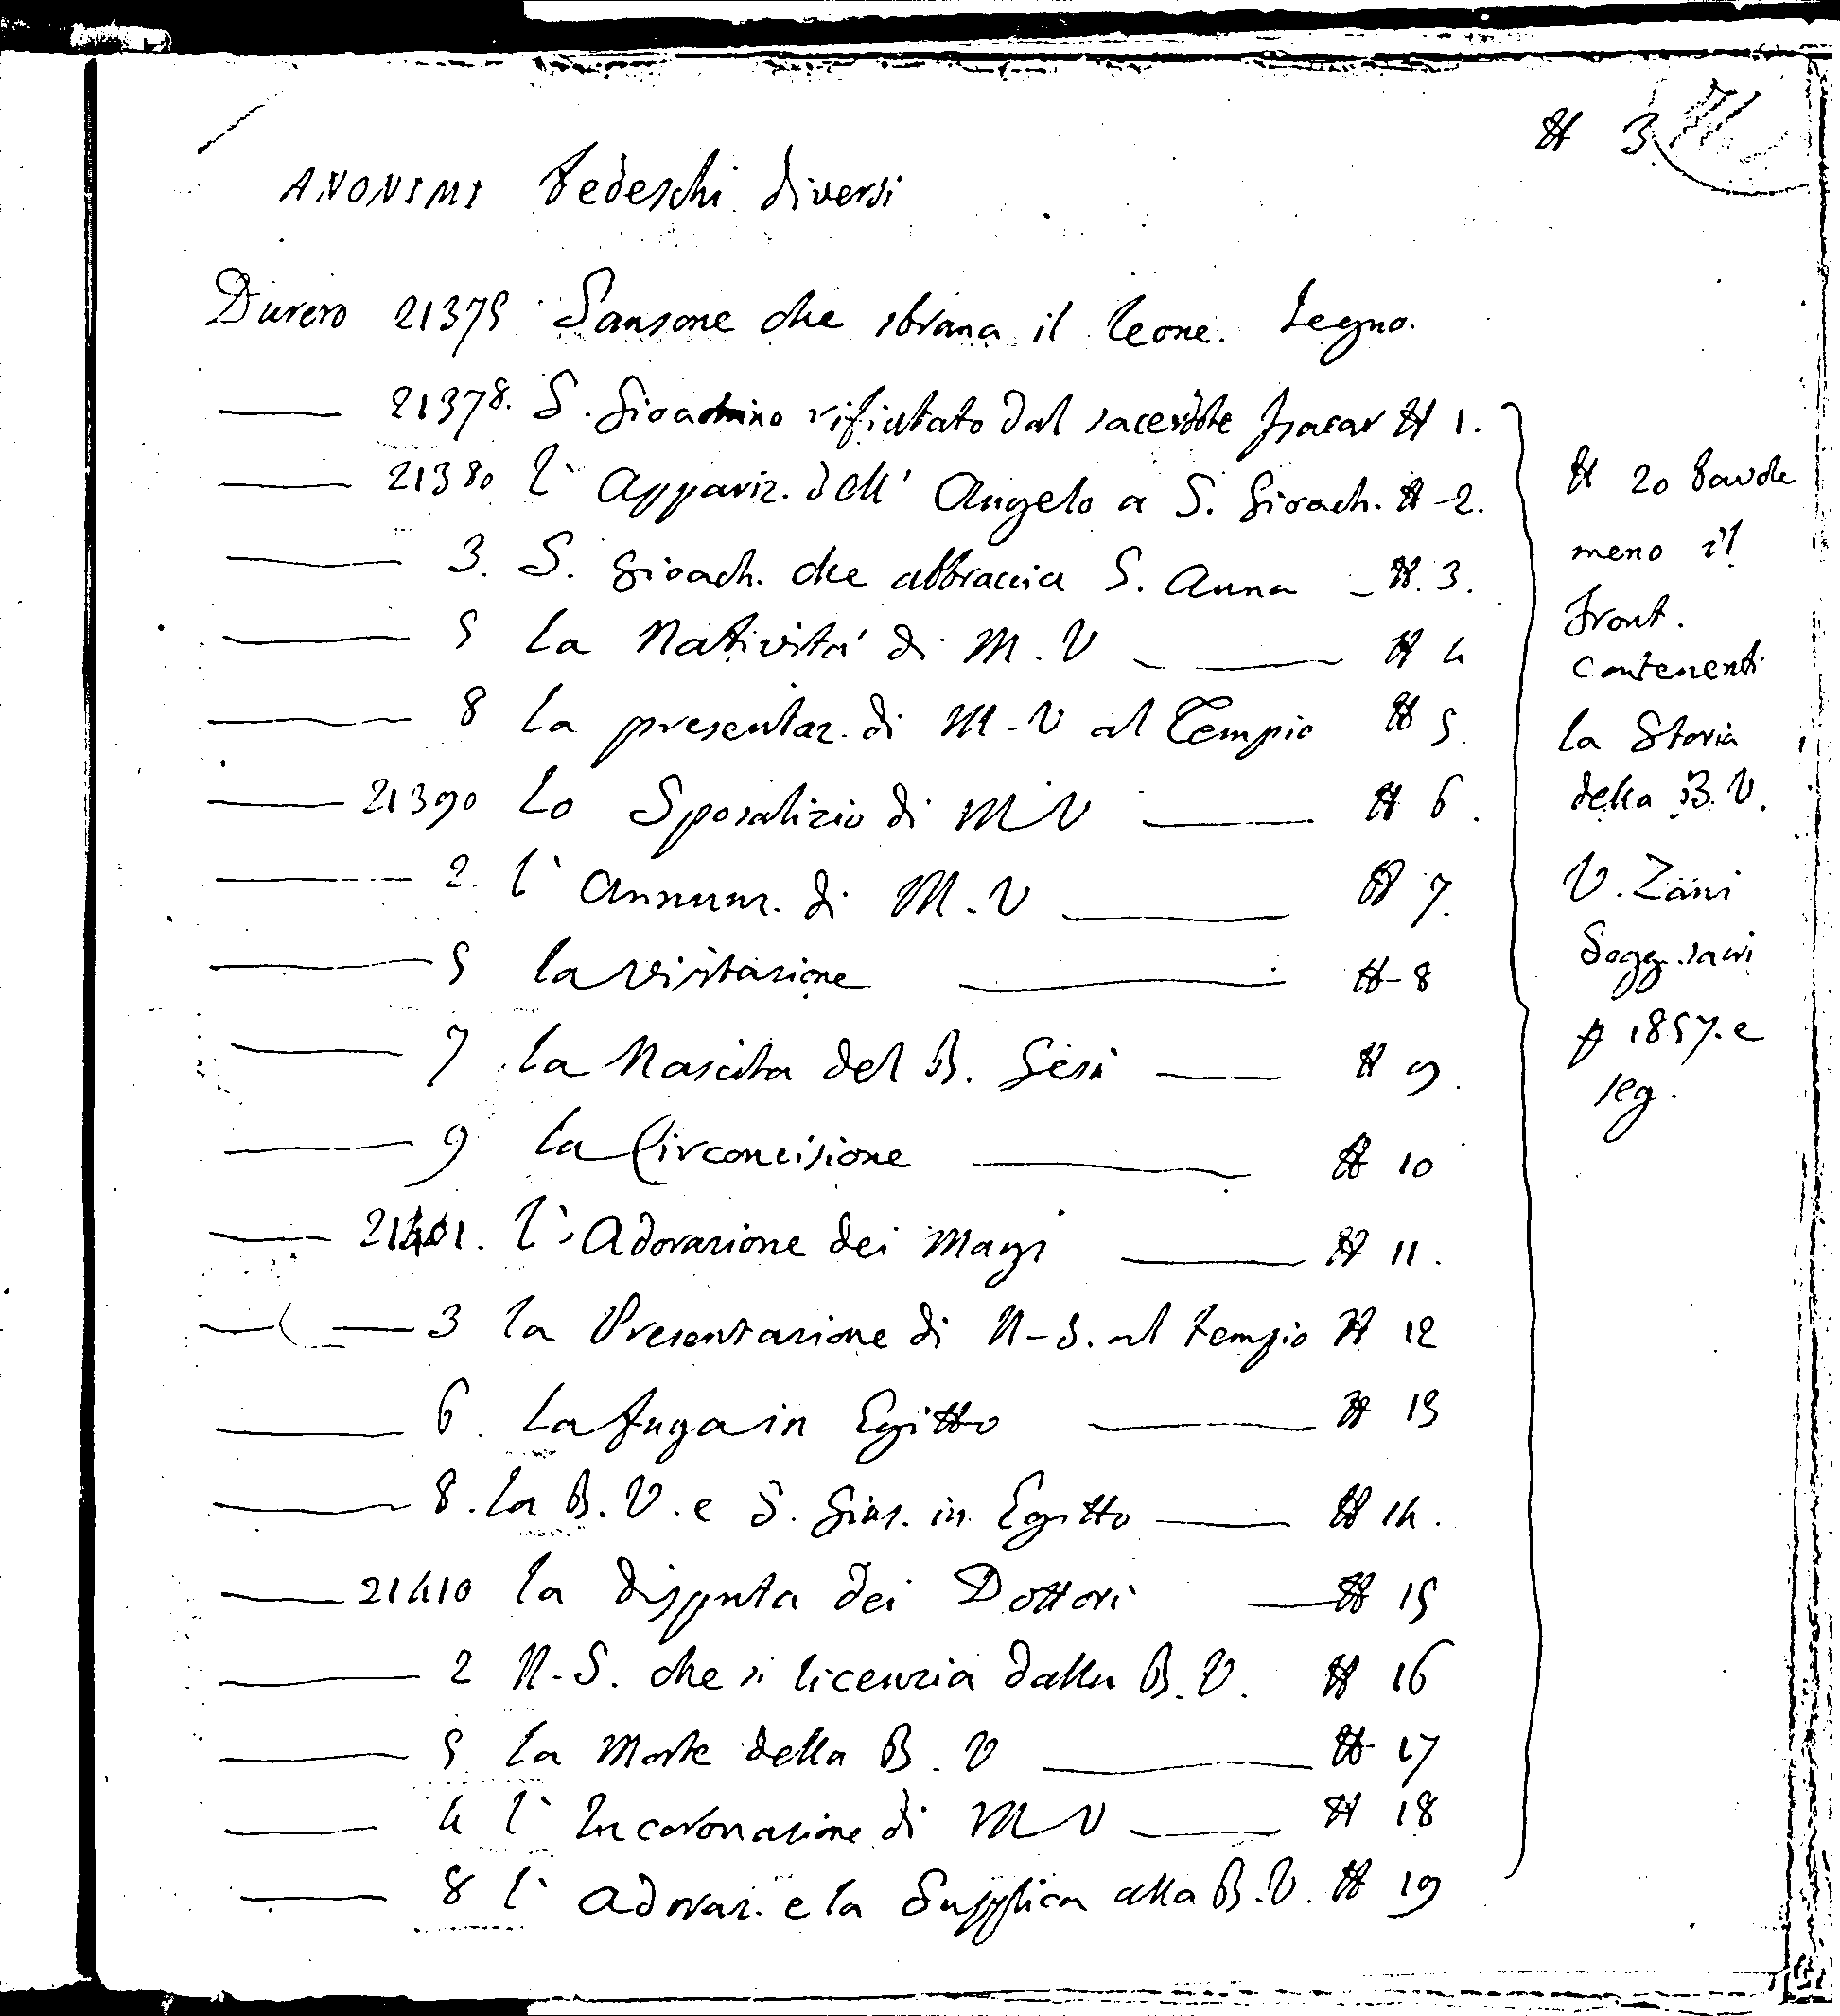 # 3
ANONIMI Tedeschi diversi
Durero 21375 Sansone che sbrana il leone. Legno.
—— 21378. S. Gioachino rifiutato dal sacerdote Isacar # 1.
—— 21380 l' Appariz. dell' Angelo a S. Gioach. # 2.
—— 3. S. Gioach. che abbraccia S. Anna — #. 3.
—— 5 la Natività di M. V —— # 4
—— 8 la presentaz. di M. V al Tempio # 5.
—— 21390 Lo Sposalizio di M V —— # 6.
—— 2. l' Annunz. di M. V —— # 7.
—— 5 la Visitazione —— # 8
—— 7 la Nascita del B. Gesù —— # 9.
—— 9 la Circoncisione —— # 10
—— 21401. l' Adorazione dei Magi —— # 11.
—— 3 la Presentazione di N. S. al tempio # 12
—— 6. La fuga in Egitto —— # 13
—— 8. la B. V. e S. Gius. in Egitto —— # 14.
—— 21410 la disputa dei Dottori —— # 15
—— 2 N. S. che si licenzia dalla B. V. # 16
—— 5 la Morte della B. V —— # 17
—— 4 l' Incoronazione di M V —— # 18
—— 8 l' adoraz. e la Supplica alla B. V. # 19
# 20 tavole
meno il
front.
contenenti
la Storia
della B. V.
V. Zani
Sogg. sacri
p 1857. e
seg.